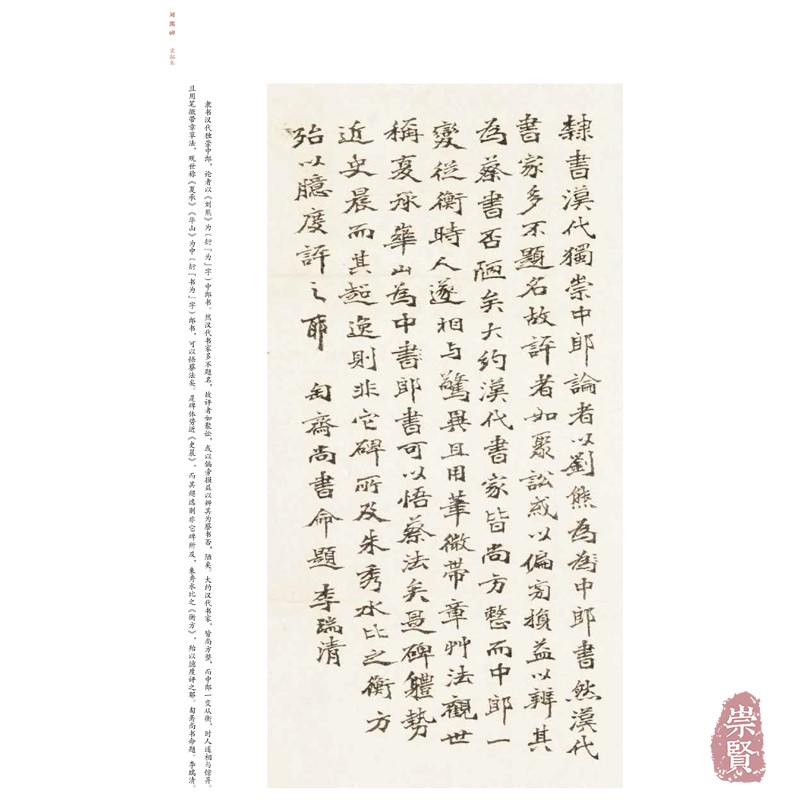 隸書漢代獨崇中郎論者以劉熊為為中郎書然漢代
書家多不題名故評者如聚訟或以偏旁損益以辨其
為蔡書否陋矣大約漢代書家皆尚方整而中郎一
變從衡時人遂相与驚異且用筆微帶章艸法觀世
稱夏承華山為中書郎書可以悟蔡法矣是碑體勢
近史晨而其超逸則非它碑所及朱秀水比之衡方
殆以臆度評之耶 匋齋尚書命題 李瑞清
隶书汉代独崇中郎，论者以《刘熊》为（衍「为」字）中郎书，然汉代书家多不题名，故评者如聚讼，或以偏旁损益以辨其为蔡书否，陋矣。大约汉代书家，皆尚方整，而中郎一变从衡，时人遂相与惊异。
且用笔微带章草法，观世称《夏承》《华山》为中（衍「书为」字）郎书，可以悟蔡法矣。是碑体势近《史晨》，而其超逸则非它碑所及，朱秀水比之《衡方》，殆以臆度评之耶。匋斋尚书命题。李瑞清。
刘熊碑
崇賢